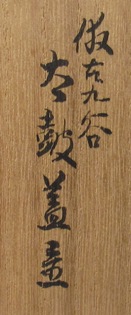 倣古九谷
太鼓蓋置